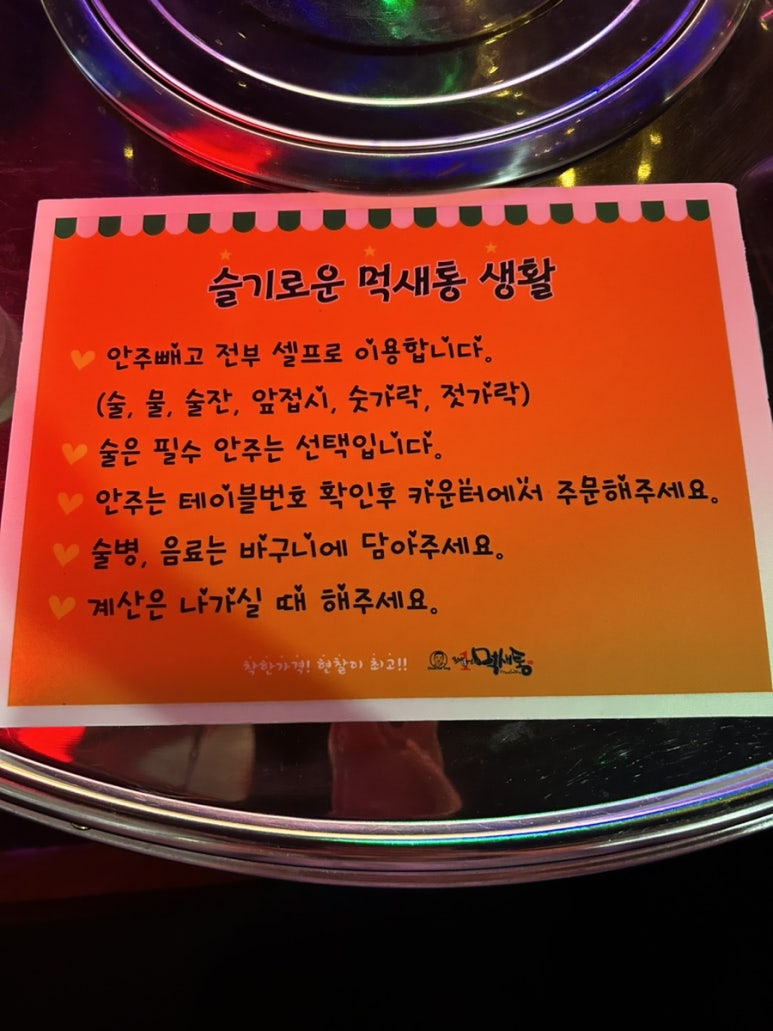 슬기로운 먹새통 생활
안주빼고 전부 셀프로 이용합니다.
(술, 물, 술잔, 앞접시, 숫가락, 젓가락)
술은 필수 안주는 선택입니다.
안주는 테이블번호 확인후 카운터에서 주문해주세요.
술병, 음료는 바구니에 담아주세요.
계산은 나가실 때 해주세요.
착한가격! 현찰이 최고!!
먹새통